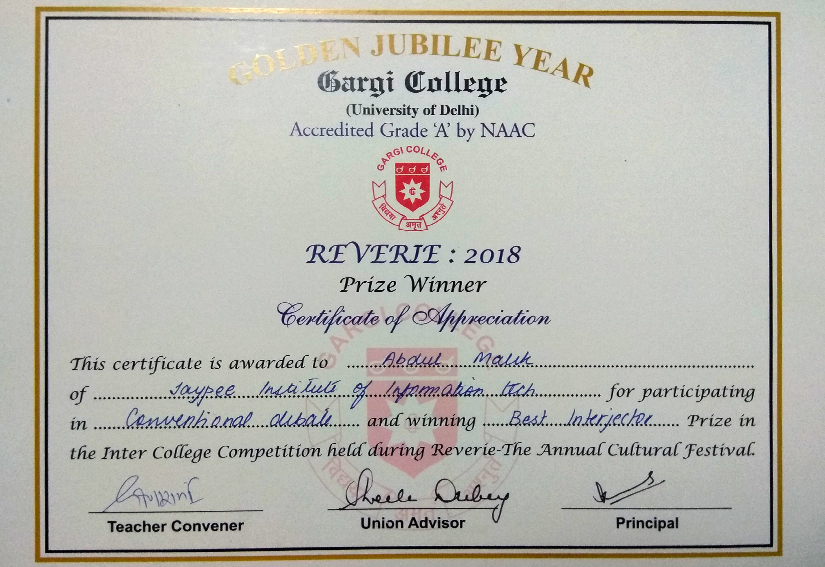 GOLDEN JUBILEE YEAR
Gargi College
(University of Delhi)
Accredited Grade 'A' by NAAC
GARGI COLLEGE
REVERIE : 2018
Prize Winner
Certificate of Appreciation
This certificate is awarded to Abdul Malik
of Jaypee Institute of Information Tech for participating
in Conventional debate and winning Best Interjector Prize in
the Inter College Competition held during Reverie-The Annual Cultural Festival.
Sheela Dubey
Teacher Convener Union Advisor Principal